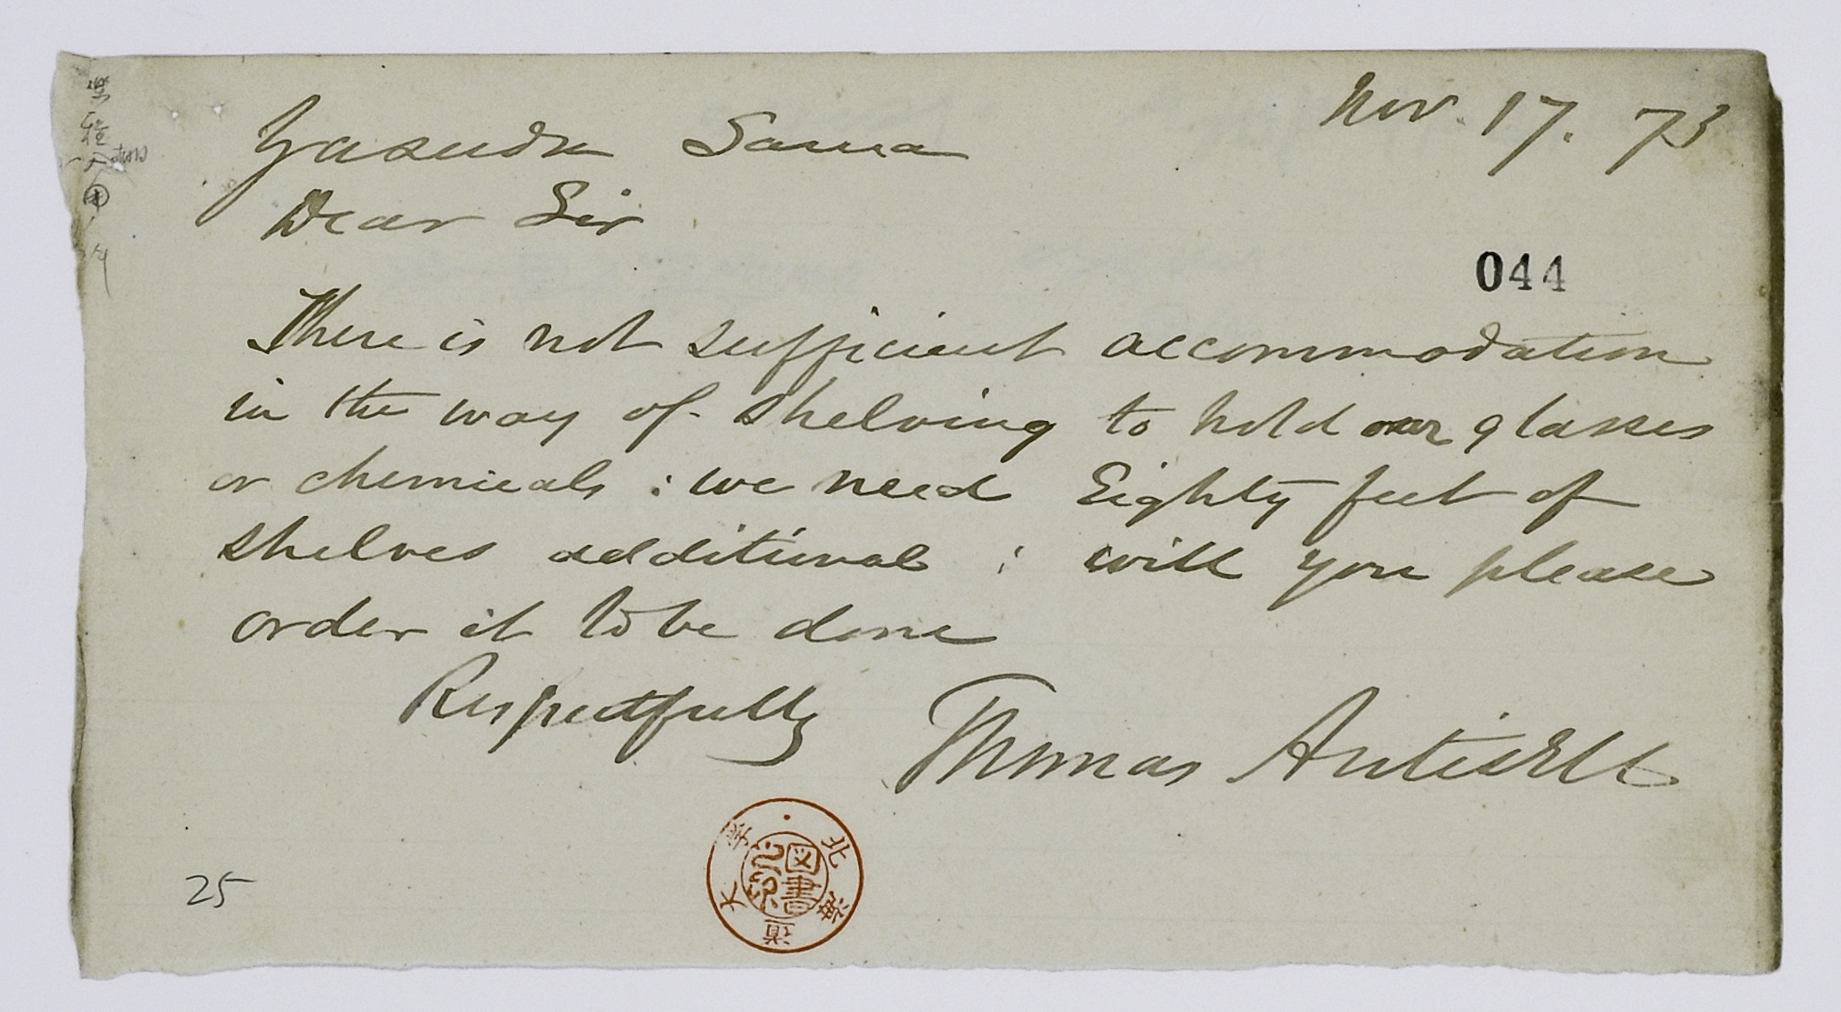 Nov. 17. 73
Yasuda Sama
Dear Sir
044
There is not sufficient accommodation
in the way of shelving to hold our glasses
or chemicals : we need Eighty feet of
shelves additional ; will you please
order it to be done
Respectfully
Thomas Antisell
北海道大学
図書
25